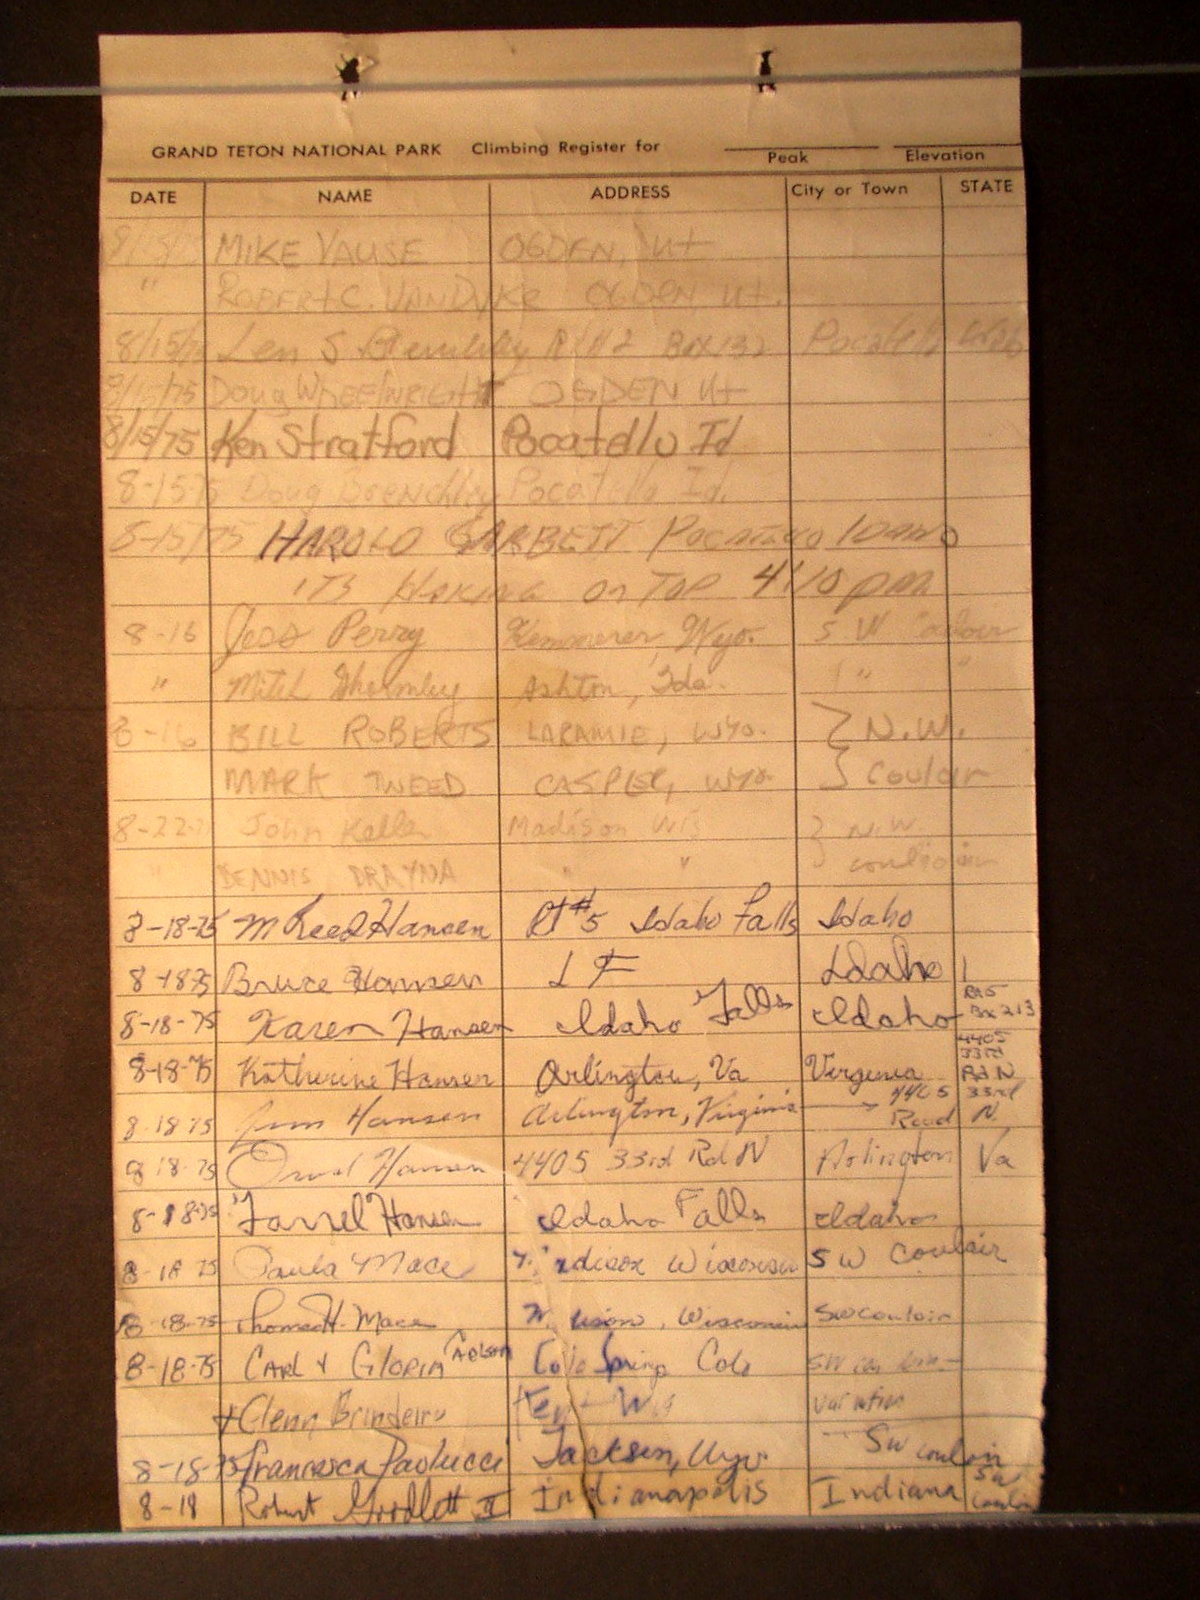 GRAND TETON NATIONAL PARK Climbing Register for
Peak Elevation
DATE NAME ADDRESS City or Town STATE
MIKE VAUSE OGDEN, Ut
" ROBERT C. VANDYKE OGDEN, Ut.
8/15/75 Len S Box 132
8/15/75 Doug Wheelwright OGDEN Ut
8/15/75 Ken Stratford Pocatello Id
8-15-75 Doug Brenchley Pocatello Id.
8-15/75 HAROLD GARBETT POCATELLO IDAHO
ON TOP 4:10 pm
8-16 Jess Perry Kemmerer, Wyo. S W Couloir
" Ashton, Ida. " "
8-16 BILL ROBERTS LARAMIE, WYO. } N.W.
MARK TWEED CASPER, WYO. } Couloir
8-22-75 John Keller Madison Wis } N.W.
" DENNIS DRAYNA " "
8-18-75 M Reed Hansen Rt #5 Idaho Falls Idaho
8-18-75 Bruce Hansen I F Idaho
8-18-75 Karen Hansen Idaho Falls Idaho Rt 5 Bx 213
8-18-75 Katherine Hansen Arlington, Va Virginia 4405 33rd Rd N
8-18-75 Jim Hansen Arlington, Virginia → 4405 33rd Road N
8-18-75 Orval Hansen 4405 33rd Rd N Arlington Va
8-18-75 Farrel Hansen Idaho Falls Idaho
8-18-75 Paula Mace Wisconsin SW Couloir
8-18-75 Thomas H. Mace Wisconsin SW Couloir
8-18-75 CARL & GLORIA Colo Spring Colo SW
+ Glenn Brindeiro Kent Wa variation
8-18-75 Francesca Paolucci Jackson, Wyo. SW couloir
8-18 Robert Goodlett II Indianapolis Indiana SW Couloir